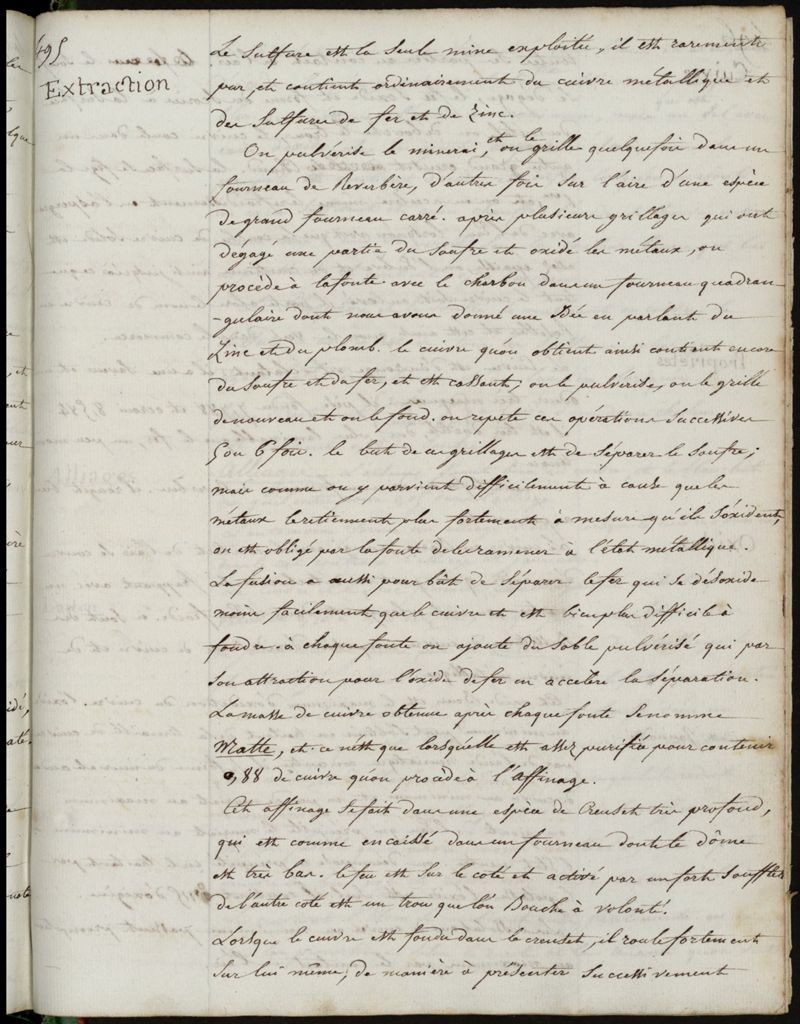 495
Extraction
Le sulfure est la seule mine exploitée, il est rarement
pur, et contient ordinairement du cuivre métallique et
des sulfures de fer et de Zinc.
On pulvérise le minerai, et on le grille quelquefois dans un
fourneau de Reverbère, d'autres fois sur l'aire d'une espèce
de grand fourneau carré. après plusieurs grillages qui ont
dégagé une partie du soufre et oxidé les métaux, on
procède à la fonte avec le charbon dans un fourneau quadran
-gulaire dont nous avons donné une Idée en parlant du
Zinc et du plomb. le cuivre qu'on obtient ainsi contient encore
du soufre et du fer, et est cassant, on le pulvérise, on le grille
de nouveau et on le fond. on repete ces opérations successives
5 ou 6 fois. le but de ces grillages est de séparer le soufre;
mais comme on y parvient difficilement à cause que les
métaux le retiennent plus fortement à mesure qu'ils s'oxident,
on est obligé par la fonte de les ramener à l'état métallique.
La fusion a aussi pour bût de séparer le fer qui se désoxide
moins facilement que le cuivre et est bien plus difficile à
fondre. à chaque fonte on ajoute du sable pulvérisé qui par
son attraction pour l'oxide de fer en accelère la séparation.
La masse de cuivre obtenue après chaque fonte se nomme
Matte, et ce n'est que lorsqu'elle est assez purifiée pour contenir
0,88 de cuivre qu'on procède à l'affinage.
Cet affinage se fait dans une espèce de Creuset très profond,
qui est comme encaissé dans un fourneau dont le dôme
est très bas. le feu est sur le coté et activé par un fort soufflet
de l'autre coté est un trou que l'on Bouche à volonté.
Lorsque le cuivre est fondu dans le creuset, il roule fortement
sur lui même, de manière à présenter successivement